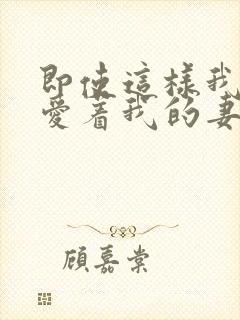 即使這樣我
愛着我的妻
顧嘉棠